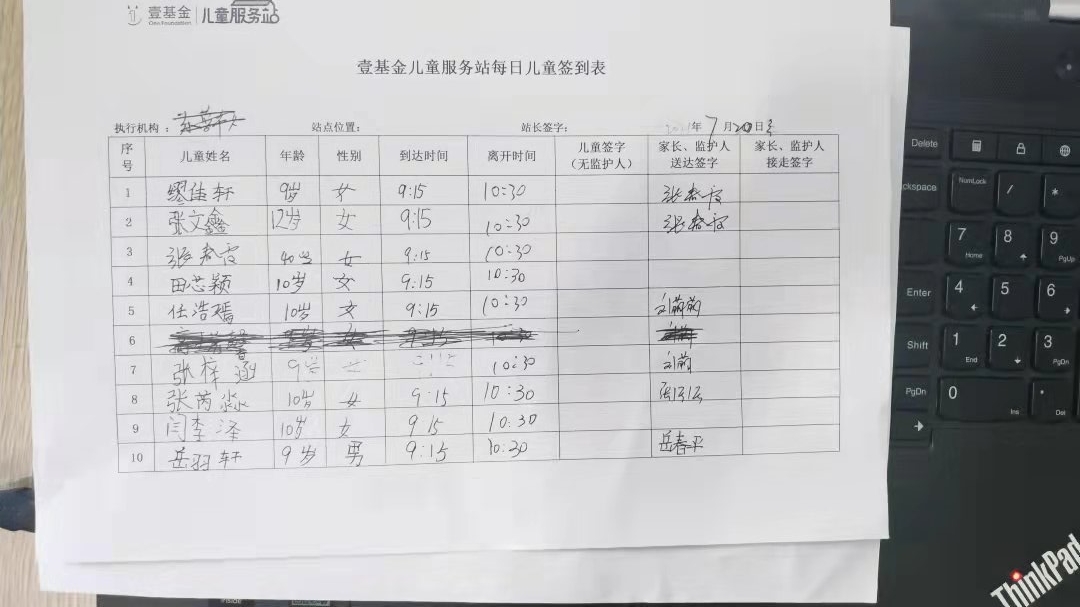 壹基金 儿童服务站
One Foundation
壹基金儿童服务站每日儿童签到表
执行机构： 站点位置： 站长签字： 年 7 月 20 日
序号 儿童姓名 年龄 性别 到达时间 离开时间 儿童签字（无监护人） 家长、监护人送达签字 家长、监护人接走签字
1 缪佳轩 9岁 女 9:15 10:30 张春霞
2 张文鑫 12岁 女 9:15 10:30 张春霞
3 张春霞 40岁 女 9:15 10:30
4 田芯颖 10岁 女 9:15 10:30
5 任浩嫣 10岁 女 9:15 10:30
6
7 张梓涵 9岁 女 10:30
8 张芮淼 10岁 女 9:15 10:30
9 闫李泽 10岁 女 9:15 10:30
10 岳羽轩 9岁 男 9:15 10:30 岳春平
Delete
ckspace NumLock / *
7 Home 8 9 PgUp
Enter 4 5 6
Shift 1 End 2 3 PgDn
PgDn 0 Ins . Del
ThinkPad
Inside